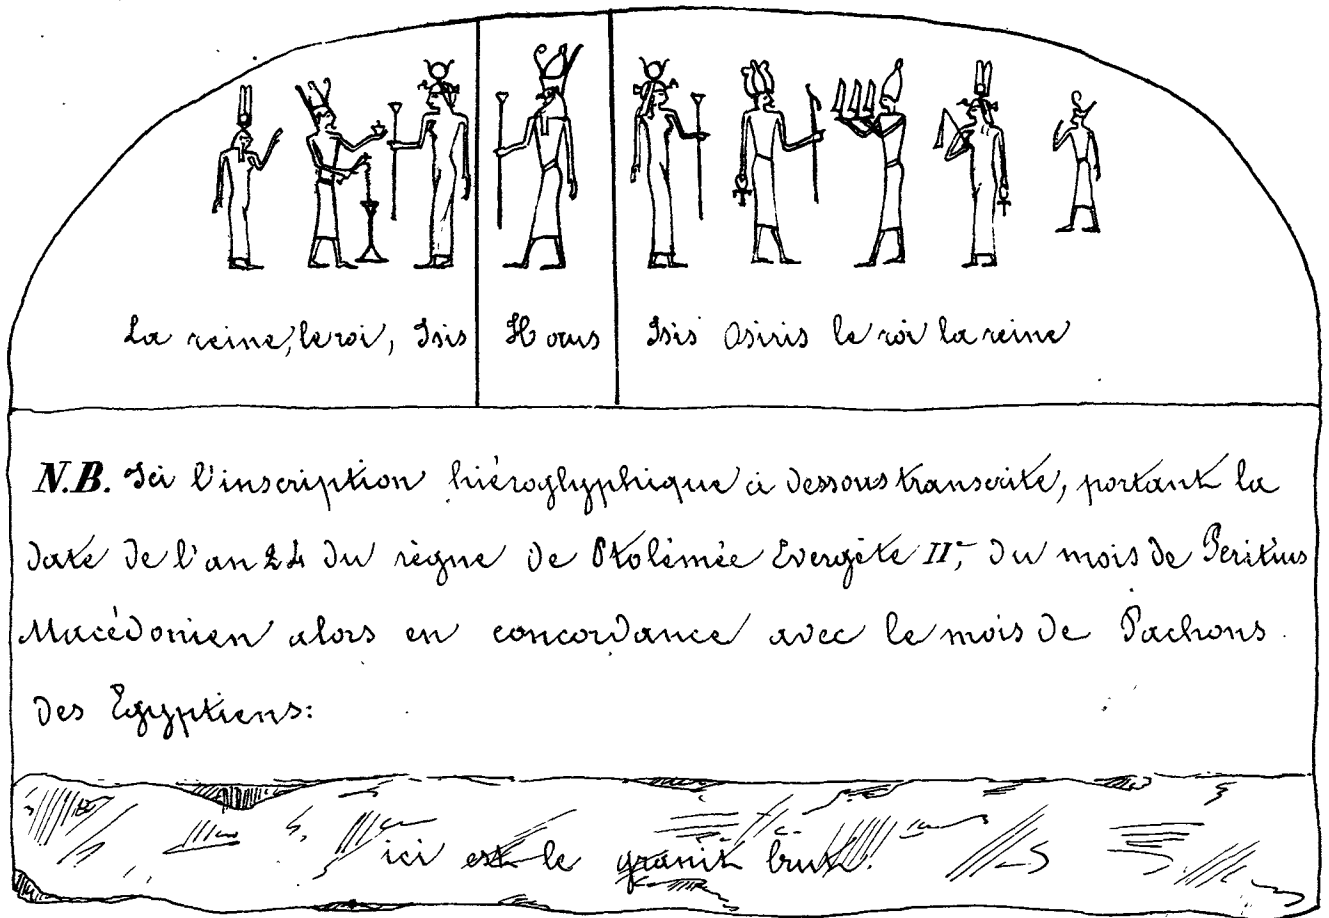 La reine, le roi, Isis Horus Isis Osiris le roi la reine
N.B. Ici l'inscription hiéroglyphique ci dessous transcrite, portant la
date de l'an 24 du règne de Ptolémée Evergète IIe, du mois de Peritius
Macédonien alors en concordance avec le mois de Pachons
des Egyptiens:
ici est le granit brut.